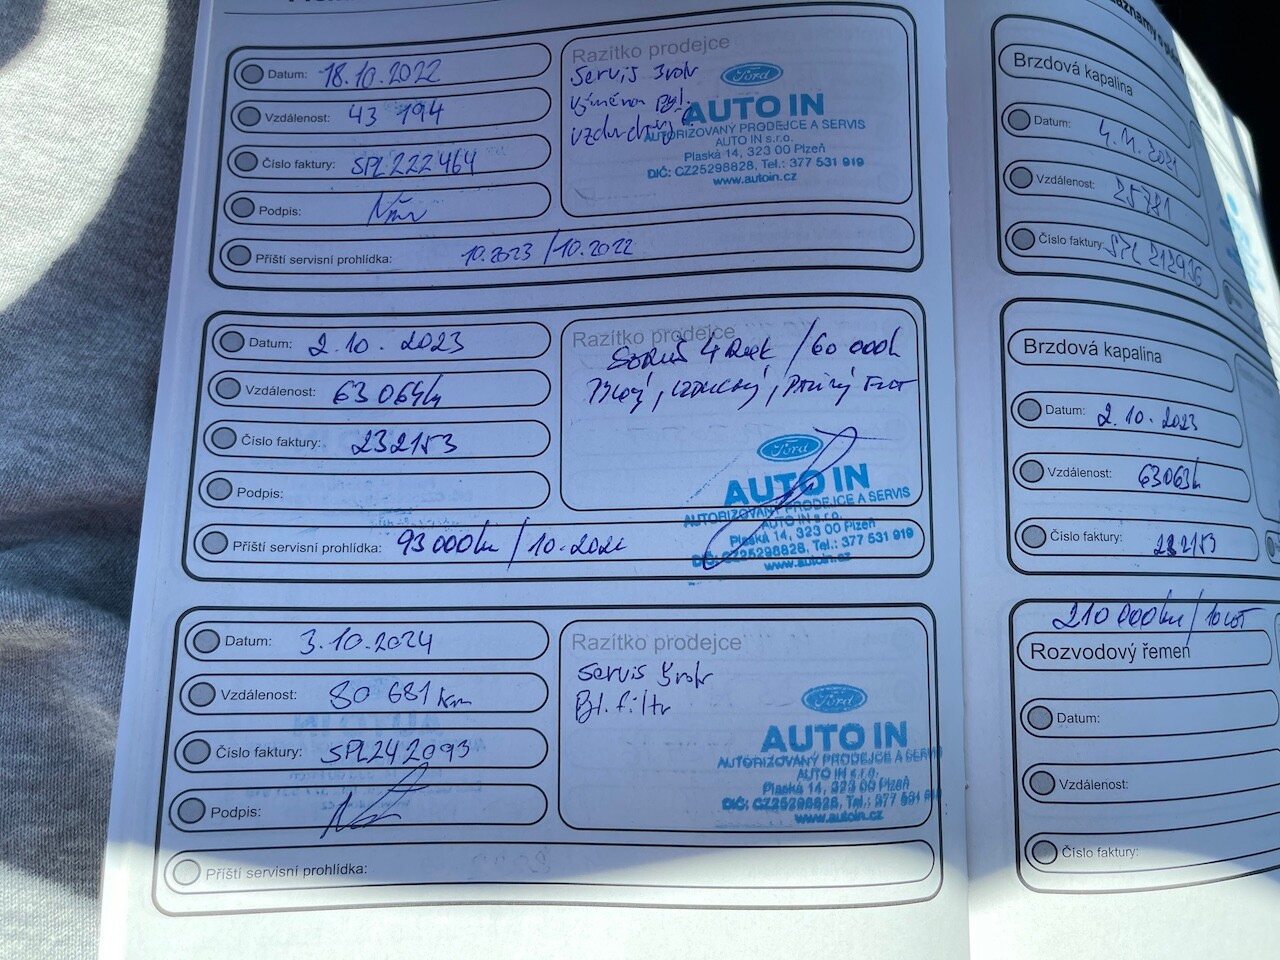 Datum: 18.10.2022
Vzdálenost: 43 194
Číslo faktury: SPL222464
Podpis:
Příští servisní prohlídka: 10.2023 / 10.2022
Razítko prodejce
Servis 3rok
výměna pyl.
Ford
AUTO IN
AUTORIZOVANÝ PRODEJCE A SERVIS
AUTO IN s.r.o.
Plaská 14, 323 00 Plzeň
DIČ: CZ25298828, Tel.: 377 531 919
www.autoin.cz
Datum: 2.10.2023
Vzdálenost: 63 064
Číslo faktury: 232153
Podpis:
Příští servisní prohlídka: 93 000km / 10.
Razítko prodejce
4 / 60 000k
Ford
AUTO IN
AUTORIZOVANÝ PRODEJCE A SERVIS
AUTO IN s.r.o.
Plaská 14, 323 00 Plzeň
DIČ: CZ25298828, Tel.: 377 531 919
www.autoin.cz
Datum: 3.10.2024
Vzdálenost: 80 681 km
Číslo faktury: SPL242093
Podpis:
Příští servisní prohlídka:
Razítko prodejce
Servis 5rok
filtr
Ford
AUTO IN
AUTORIZOVANÝ PRODEJCE A SERVIS
AUTO IN s.r.o.
Plaská 14, 323 00 Plzeň
DIČ: CZ25298828, Tel.: 377 531 919
www.autoin.cz
Brzdová kapalina
Datum: 4.11.2021
Vzdálenost: 25781
Číslo faktury: SPL 212936
Brzdová kapalina
Datum: 2.10.2023
Vzdálenost: 63063k
Číslo faktury: 232153
210 000km / 10
Rozvodový řemen
Datum:
Vzdálenost:
Číslo faktury: